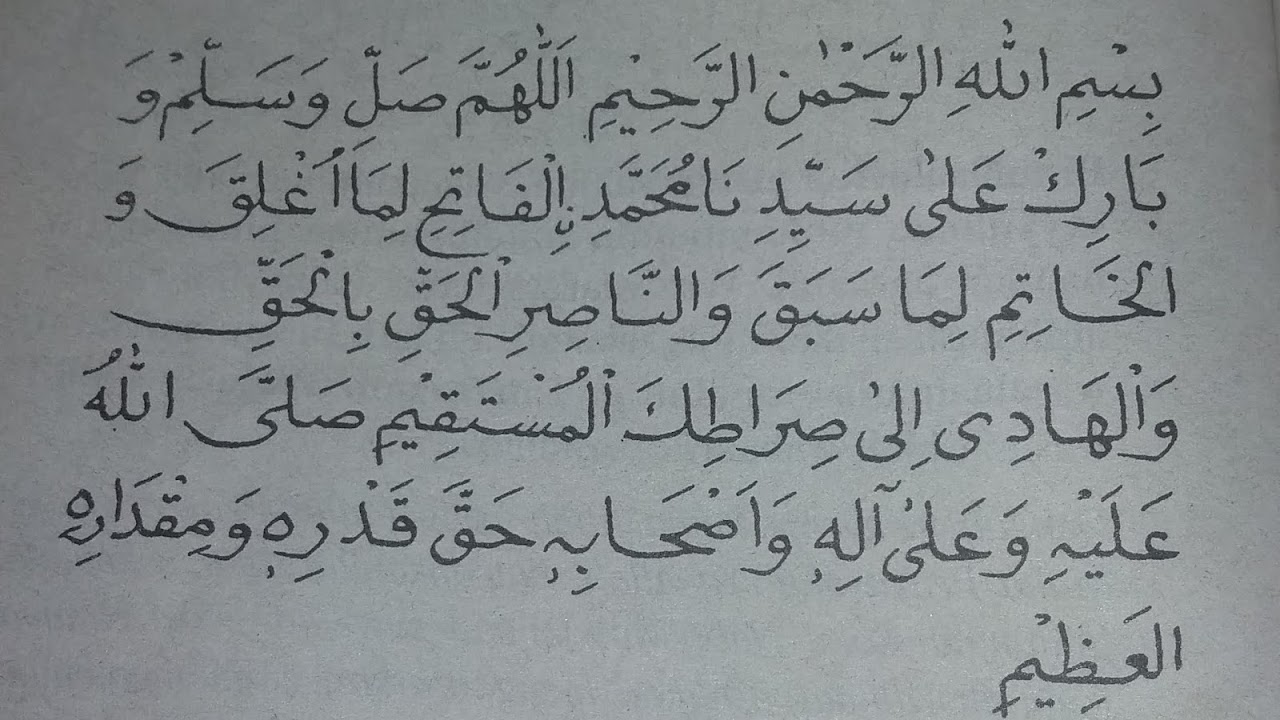 بِسْمِ اللهِ الرَّحْمٰنِ الرَّحِيْمِ اَللّٰهُمَّ صَلِّ وَسَلِّمْ وَ
بَارِكْ عَلٰى سَيِّدِ نَا مُحَمَّدِ نِ الْفَاتِحِ لِمَا اُغْلِقَ وَ
الخَاتِمِ لِمَا سَبَقَ وَالنَّاصِرِ الْحَقِّ بِالْحَقِّ
وَالْهَادِى اِلٰى صِرَاطِكَ الْمُسْتَقِيْمِ صَلَّى اللهُ
عَلَيْهِ وَعَلٰى آلِهٖ وَاَصْحَابِهٖ حَقَّ قَدْرِهٖ وَمِقْدَارِهِ
العَظِيْمِ